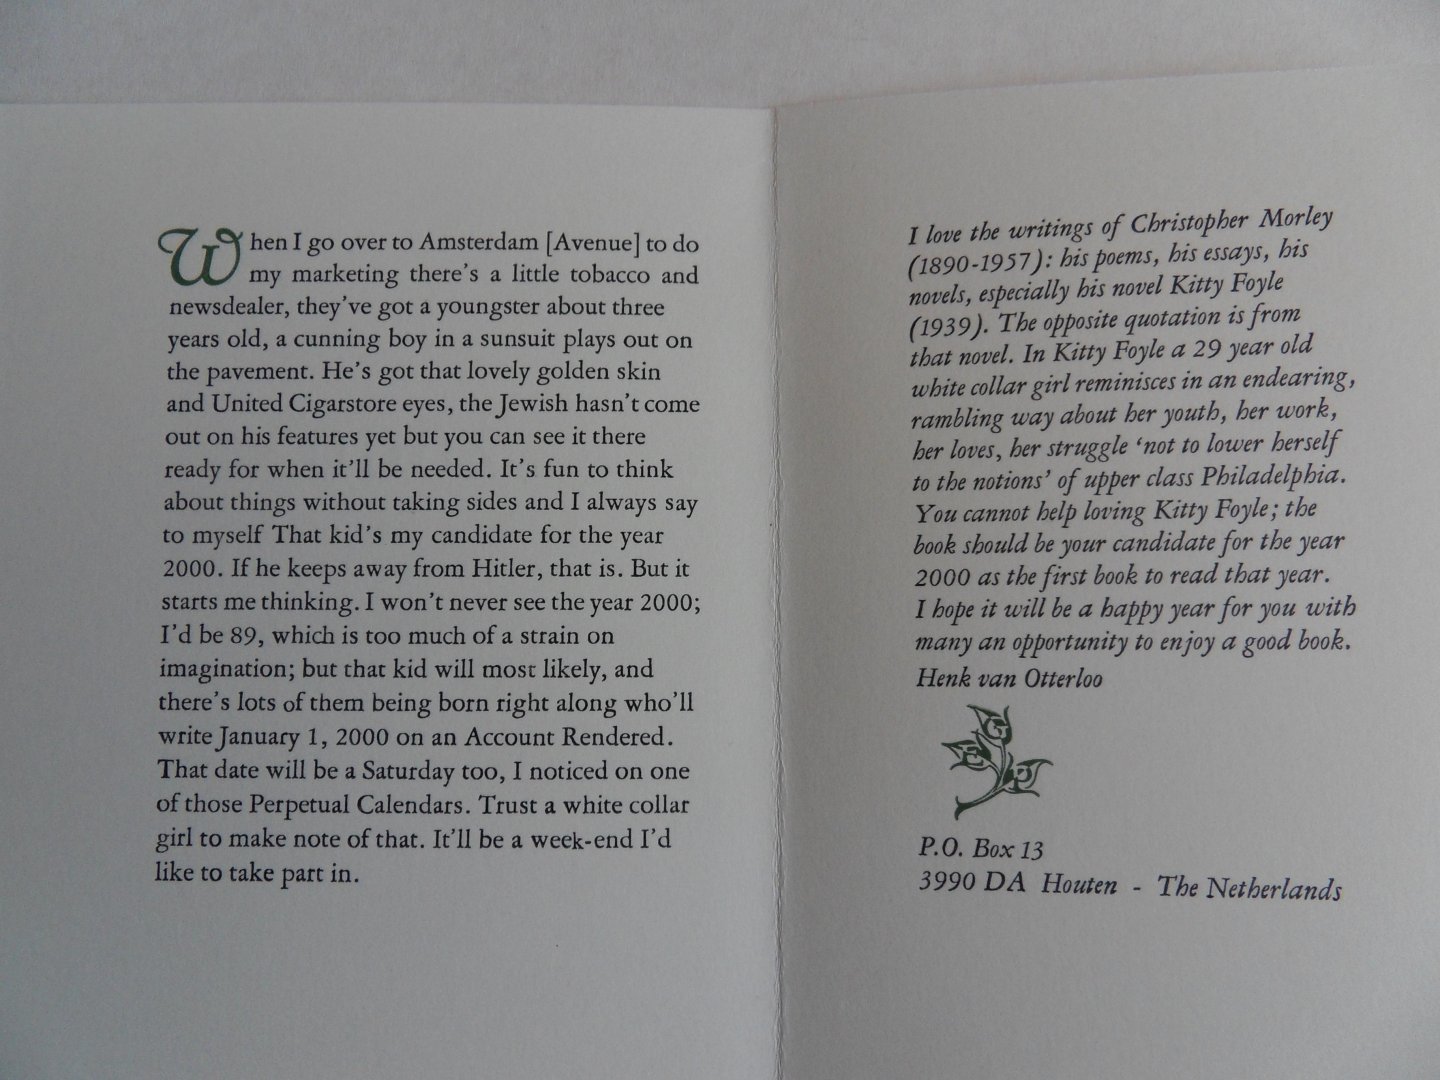 When I go over to Amsterdam [Avenue] to do
my marketing there's a little tobacco and
newsdealer, they've got a youngster about three
years old, a cunning boy in a sunsuit plays out on
the pavement. He's got that lovely golden skin
and United Cigarstore eyes, the Jewish hasn't come
out on his features yet but you can see it there
ready for when it'll be needed. It's fun to think
about things without taking sides and I always say
to myself That kid's my candidate for the year
2000. If he keeps away from Hitler, that is. But it
starts me thinking. I won't never see the year 2000;
I'd be 89, which is too much of a strain on
imagination; but that kid will most likely, and
there's lots of them being born right along who'll
write January 1, 2000 on an Account Rendered.
That date will be a Saturday too, I noticed on one
of those Perpetual Calendars. Trust a white collar
girl to make note of that. It'll be a week-end I'd
like to take part in.
I love the writings of Christopher Morley
(1890-1957): his poems, his essays, his
novels, especially his novel Kitty Foyle
(1939). The opposite quotation is from
that novel. In Kitty Foyle a 29 year old
white collar girl reminisces in an endearing,
rambling way about her youth, her work,
her loves, her struggle 'not to lower herself
to the notions' of upper class Philadelphia.
You cannot help loving Kitty Foyle; the
book should be your candidate for the year
2000 as the first book to read that year.
I hope it will be a happy year for you with
many an opportunity to enjoy a good book.
Henk van Otterloo
P.O. Box 13
3990 DA Houten - The Netherlands